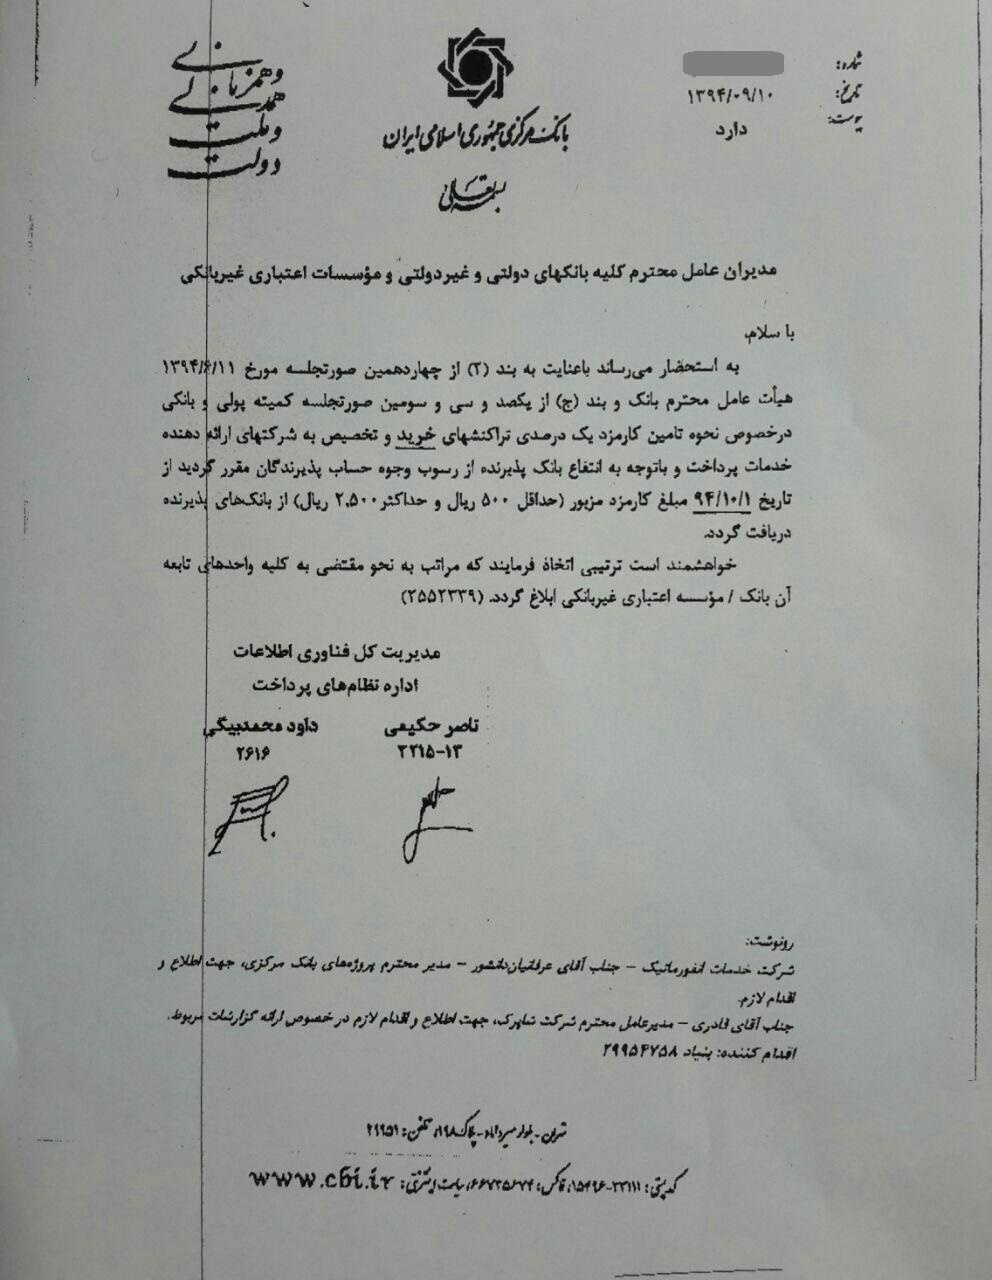 شماره:
تاریخ: ۱۳۹۴/۰۹/۱۰
پیوست: دارد
دولت و ملت همدلی و همزبانی
بانک مرکزی جمهوری اسلامی ایران
بسمه تعالی
مدیران عامل محترم کلیه بانکهای دولتی و غیردولتی و مؤسسات اعتباری غیربانکی
با سلام،
به استحضار می‌رساند باعنایت به بند (۲) از چهاردهمین صورتجلسه مورخ ۱۳۹۴/۶/۱۱
هیأت عامل محترم بانک و بند (ج) از یکصد و سی و سومین صورتجلسه کمیته پولی و بانکی
درخصوص نحوه تامین کارمزد یک درصدی تراکنشهای خرید و تخصیص به شرکتهای ارائه دهنده
خدمات پرداخت و باتوجه به انتفاع بانک پذیرنده از رسوب وجوه حساب پذیرندگان مقرر گردید از
تاریخ ۹۴/۱۰/۱ مبلغ کارمزد مزبور (حداقل ۵۰۰ ریال و حداکثر ۲,۵۰۰ ریال) از بانک‌های پذیرنده
دریافت گردد.
خواهشمند است ترتیبی اتخاذ فرمایند که مراتب به نحو مقتضی به کلیه واحدهای تابعه
آن بانک / مؤسسه اعتباری غیربانکی ابلاغ گردد. (۲۵۵۲۳۳۹)
مدیریت کل فناوری اطلاعات
اداره نظام‌های پرداخت
ناصر حکیمی داود محمدبیگی
۲۲۱۵-۱۳ ۲۶۱۶
رونوشت:
شرکت خدمات انفورماتیک - جناب آقای عرفانیان‌دانشور - مدیر محترم پروژه‌های بانک مرکزی، جهت اطلاع و
اقدام لازم.
جناب آقای قادری - مدیرعامل محترم شرکت شاپرک، جهت اطلاع و اقدام لازم در خصوص ارائه گزارشات مربوط.
اقدام کننده: بنیاد ۲۹۹۵۴۷۵۸
تهران-بلوار میرداماد-پلاک ۱۹۸، تلفن: ۲۹۹۵۱
کدپستی: ۱۵۴۹۶-۳۳۱۱۱، فاکس: ۶۶۷۳۵۶۷۴، سایت اینترنتی: www.cbi.ir